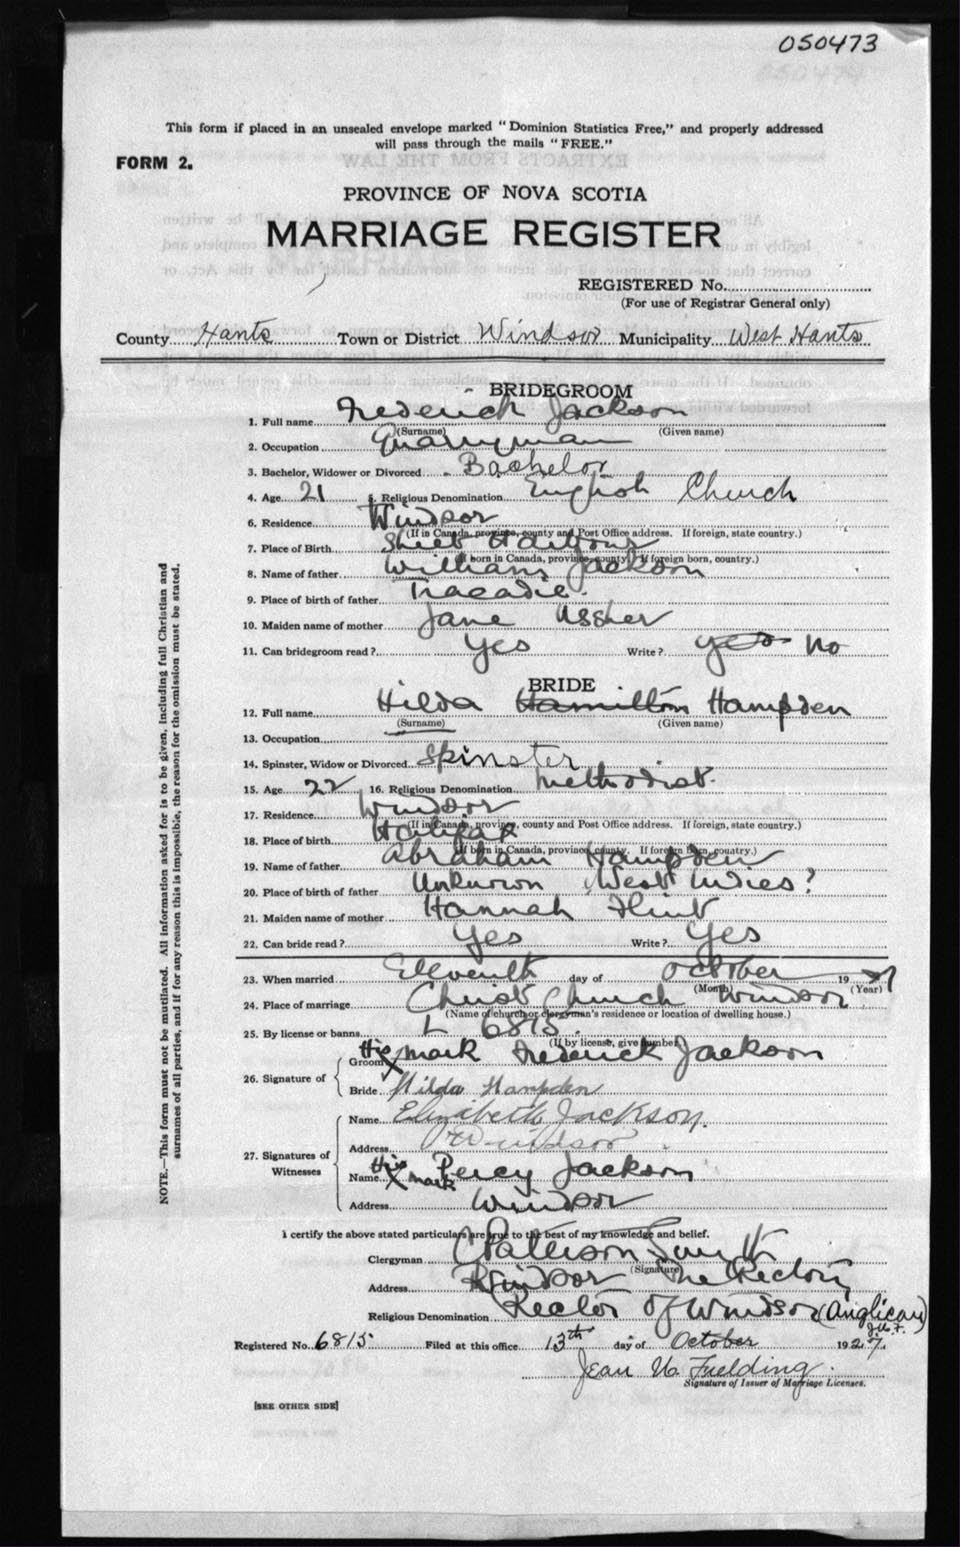 050473
This form if placed in an unsealed envelope marked "Dominion Statistics Free," and properly addressed
will pass through the mails "FREE."
FORM 2.
PROVINCE OF NOVA SCOTIA
MARRIAGE REGISTER
REGISTERED No.
(For use of Registrar General only)
County Hants Town or District Windsor Municipality West Hants
BRIDEGROOM
1. Full name Frederick Jackson
(Surname) (Given name)
2. Occupation Quarryman
3. Bachelor, Widower or Divorced Bachelor
4. Age 21 5. Religious Denomination English Church
6. Residence Windsor
(If in Canada, province, county and Post Office address. If foreign, state country.)
7. Place of Birth Sheet Harbour
(If born in Canada, province, county. If foreign born, country.)
8. Name of father William Jackson
9. Place of birth of father Tracadie
10. Maiden name of mother Jane Ussher
11. Can bridegroom read? Yes Write? yes No
BRIDE
12. Full name Hilda Hamilton Hampden
(Surname) (Given name)
13. Occupation
14. Spinster, Widow or Divorced Spinster
15. Age 22 16. Religious Denomination Methodist
17. Residence Windsor
(If in Canada, province, county and Post Office address. If foreign, state country.)
18. Place of birth Halifax
(If born in Canada, province, county. If foreign born, country.)
19. Name of father Abraham Hampden
20. Place of birth of father Unknown West Indies?
21. Maiden name of mother Hannah Flint
22. Can bride read? Yes Write? Yes
23. When married Eleventh day of October 1927
(Month) (Year)
24. Place of marriage Christ Church Windsor
(Name of church or clergyman's residence or location of dwelling house.)
25. By license or banns L 6815.
(If by license, give number.)
26. Signature of
Groom His X mark Frederick Jackson
Bride Hilda Hampden
27. Signatures of Witnesses
Name Elizabeth Jackson.
Address Windsor
Name His X mark Percy Jackson
Address Windsor
I certify the above stated particulars are true to the best of my knowledge and belief.
Clergyman C Patterson Smyth
(Signature)
Address Windsor The Rectory
Religious Denomination Rector of Windsor (Anglican)
Registered No. 6815 Filed at this office 13th day of October 1927.
Jean Fielding.
Signature of Issuer of Marriage Licenses.
[SEE OTHER SIDE]
NOTE.—This form must not be mutilated. All information asked for is to be given, including full Christian and
surnames of all parties, and if for any reason this is impossible, the reason for the omission must be stated.